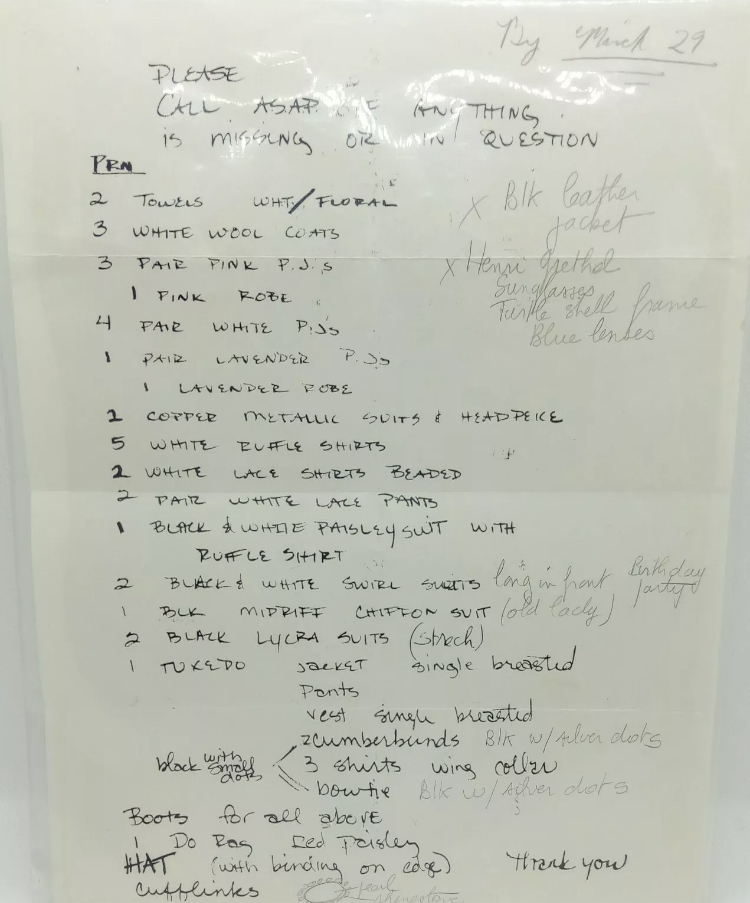 By March 29
PLEASE
CALL ASAP IF ANYTHING
is MISSING OR IN QUESTION
PRN
2 TOWELS WHT/FLORAL
X Blk leather
jacket
3 WHITE WOOL COATS
3 PAIR PINK P.J.'s
X Henri
Sunglasses
Turtle shell frame
Blue lenses
1 PINK ROBE
4 PAIR WHITE P.J's
1 PAIR LAVENDER P.Js
1 LAVENDER ROBE
2 COPPER METALLIC SUITS & HEADPEICE
5 WHITE RUFFLE SHIRTS
2 WHITE LACE SHIRTS BEADED
2 PAIR WHITE LACE PANTS
1 BLACK & WHITE PAISLEY SUIT WITH
RUFFLE SHIRT
2 BLACK & WHITE SWIRL SUITS long in front Birthday
party
1 BLK MIDRIFF CHIFFON SUIT (old lady)
2 BLACK LYCRA SUITS (strech)
1 TUXEDO JACKET single breasted
Pants
vest single breasted
2 cumberbunds Blk w/silver dots
black with small dots
3 shirts wing coller
bowtie Blk w/silver dots
Boots for all above
1 Do Rag Red Paisley
HAT (with binding on edge) Thank you
Cufflinks pearl